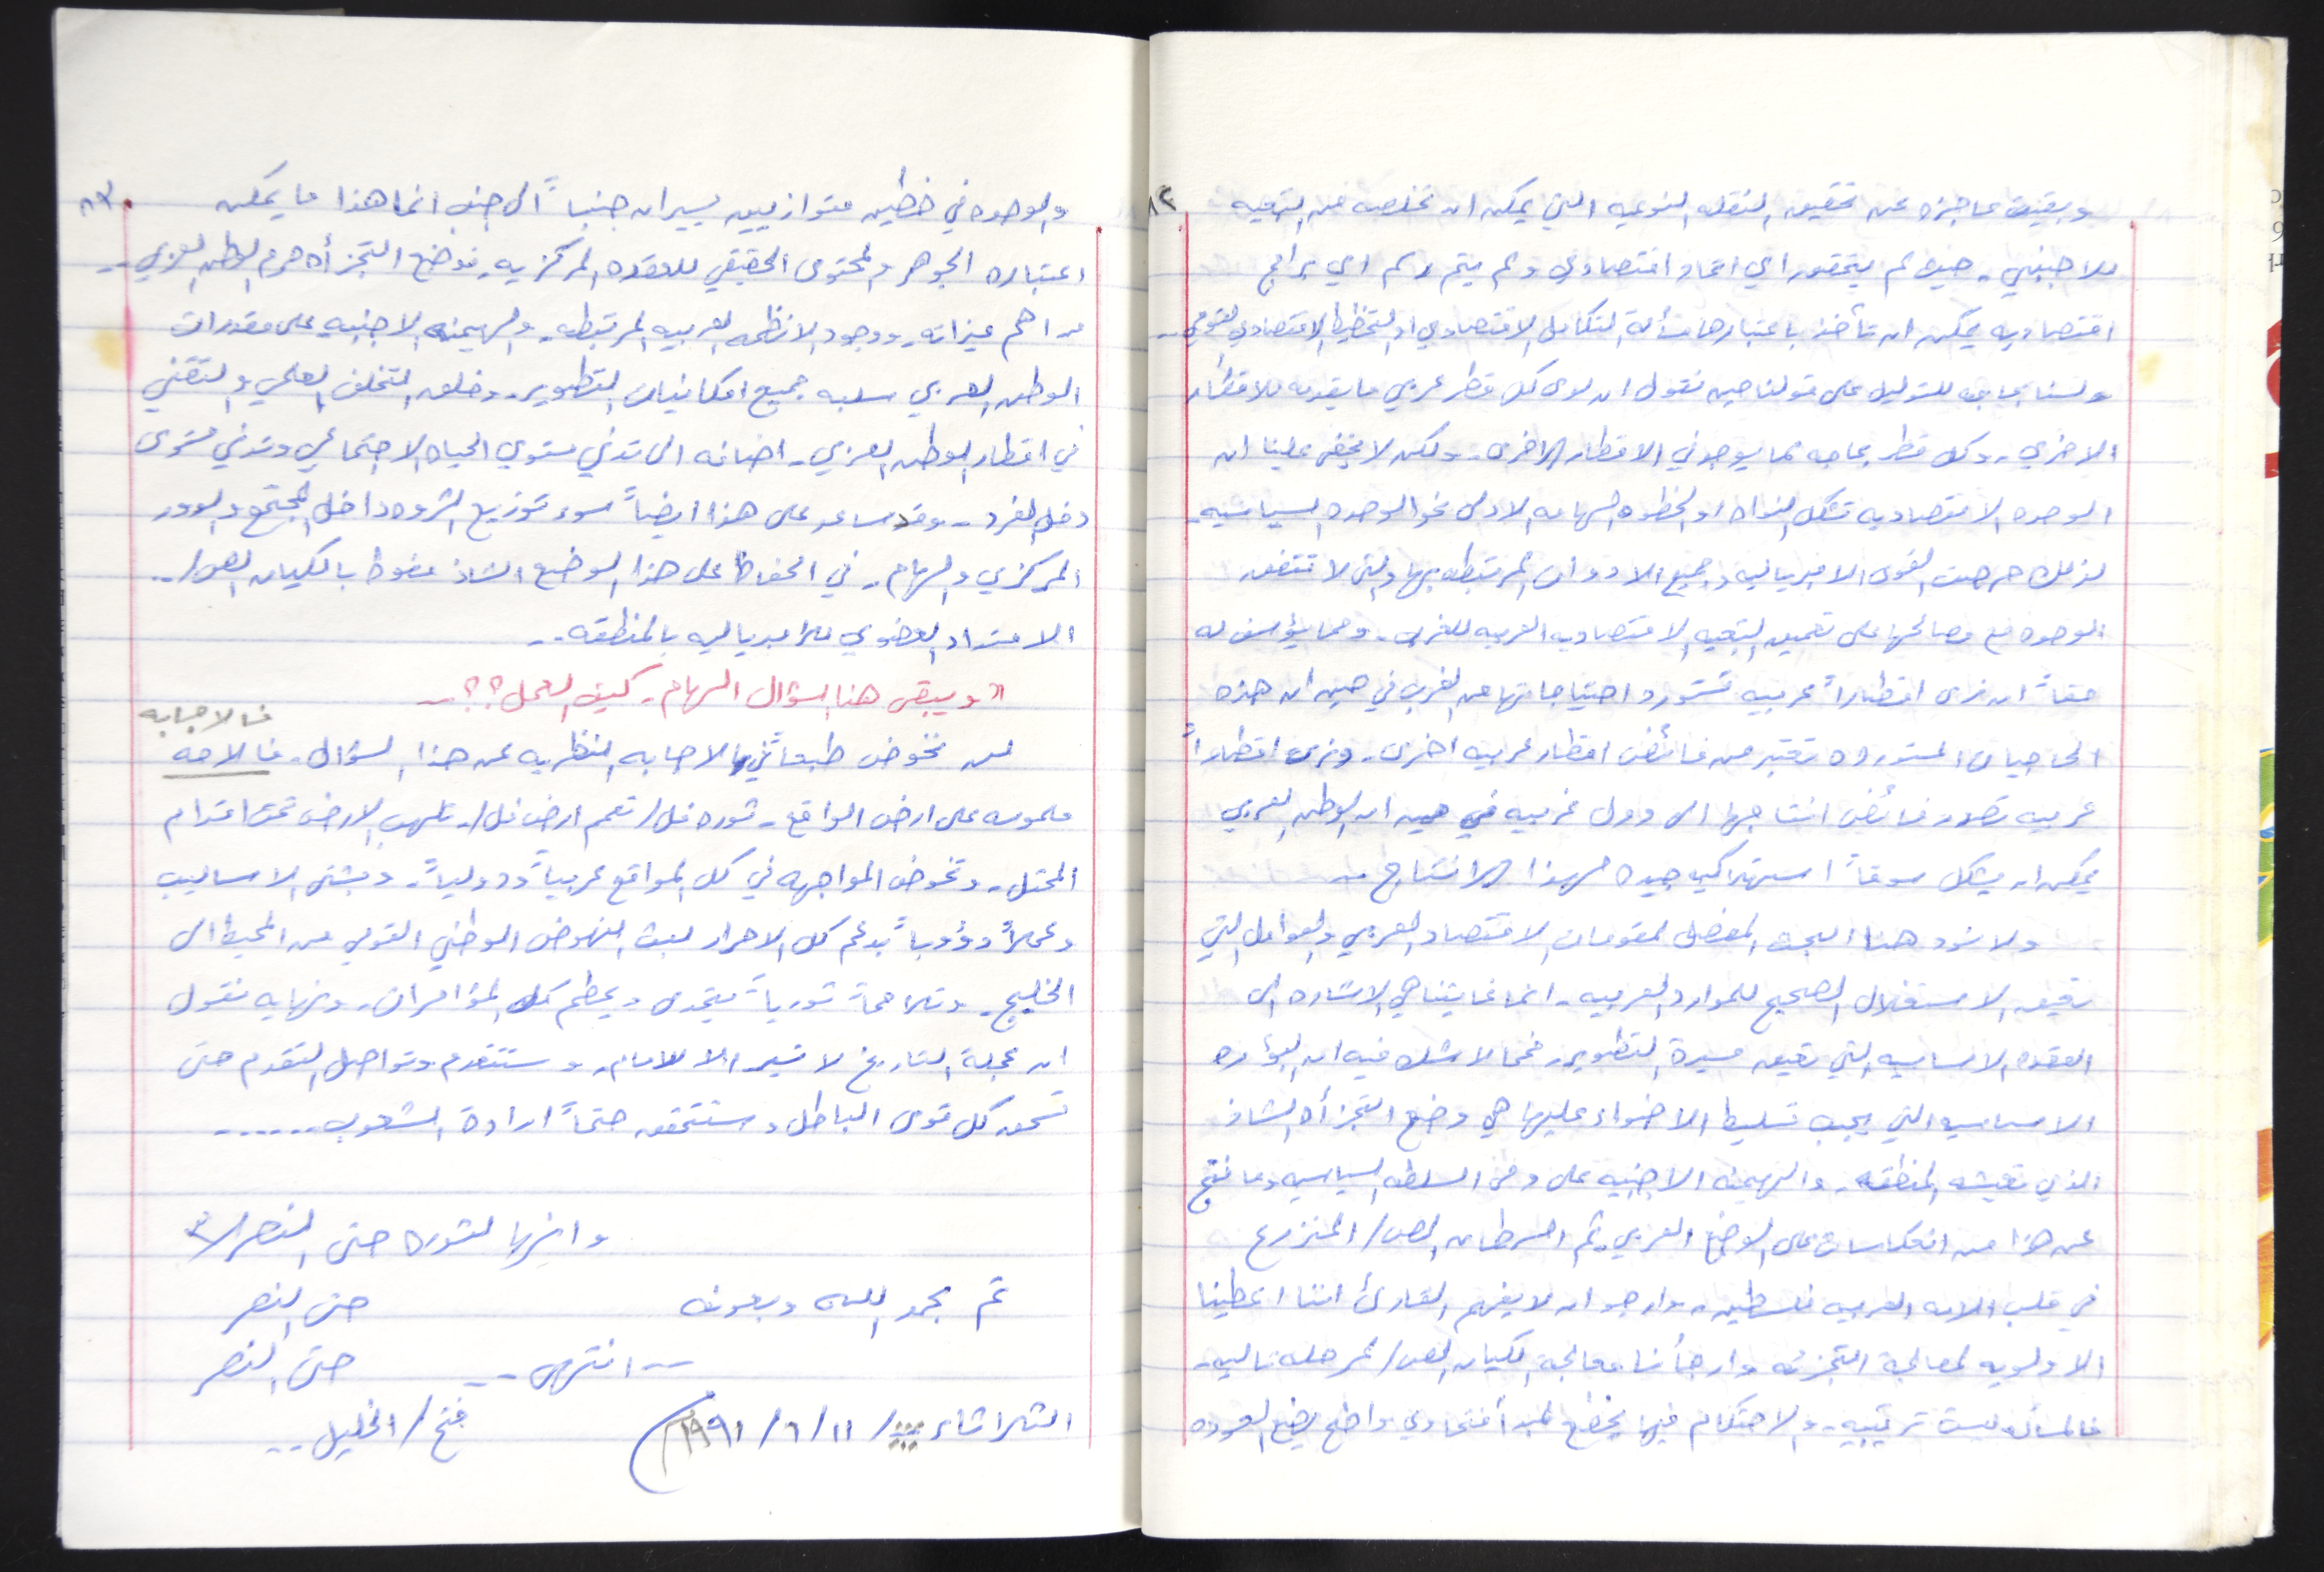 ٨٢
وبقيت عاجزه عن تحقيق النقله النوعيه التي يمكن ان تخلصه من التبعيه
للاجنبي - حيث لم يتحقق اي اتحاد اقتصادي ولم يتم رسم اي برامج
اقتصاديه يمكن ان تأخذ باعتبارها مسألة التكامل الاقتصادي او التخطيط الاقتصادي القومي --
ولسنا بحاجه للتدليل على قولنا حين نقول ان لدى كل قطر عربي ما يقدمه للاقطار
الاخرى - وكل قطر بحاجه لما يوجد في الاقطار الاخرى - ولكن لا يخفى علينا ان
الوحده الاقتصاديه تشكل النواه او الخطوه الهامه الاولى نحو الوحده السياسيه -
لذلك حرصت القوى الامبرياليه وجميع الادوات المرتبطه بها والتي لا تتفق
الوحده مع مصالحها على تعميق التبعيه الاقتصاديه العربيه للغرب - ومما يؤسف له
حقاً ان نرى اقطاراً عربيه تستورد احتياجاتها من الغرب في حين ان هذه
الحاجيات المستورده تعتبر من فائض اقطار عربيه اخرى - ونرى اقطاراً
عربيه تصدر فائض انتاجها الى دول غربيه في حين ان الوطن العربي
يمكن ان يشكل سوقاً استهلاكيه جيده لهذا الانتاج --
ولا نود هنا البحث المفصل لمقومات الاقتصاد العربي والعوامل التي
تعيق الاستغلال الصحيح للموارد العربيه - انما غايتنا هي الاشاره الى
العقده الاساسيه التي تعيق مسيرة التطوير - فمما لا شك فيه ان البؤره
الاساسيه التي يجب تسليط الاضواء عليها هي وضع التجزأه الشاذ
الذي تعيشه المنطقه - والهيمنه الاجنبيه على السلطه السياسيه وما نتج
عن هذا من انعكاسات على الوضع العربي ثم السرطان الص/ المنزرع
في قلب الامه العربيه فلسطين - وارجو ان لا يفهم القارئ اننا اعطينا
الاولويه لمعالجة التجزئه وارجأنا معالجة الكيان الص/ لمرحله تاليه -
فالمسأله ليست ترتيبيه - والاحتكام فيها يخضع لمبدأ اتحادي واضح يضع العوده
٨٣
والوحده في خطين متوازيين يسيران جنباً الى جنب انما هذا ما يمكن
اعتباره الجوهر والمحتوى الحقيقي للعقده المركزيه - فوضع التجزأه حرم الوطن العربي --
من اهم ميزاته - ووجود الانظمه العربيه المرتبطه - والهيمنه الاجنبيه على مقدرات
الوطن العربي سلبه جميع امكانيات التطوير - وخلق التخلف العلمي والتقني
في اقطار الوطن العربي - اضافه الى تدني مستوى الحياه الاجتماعي وتدني مستوى
دخل الفرد - وقد ساعد على هذا ايضاً سوء توزيع الثروه داخل المجتمع والدور
المركزي والهام - في الحفاظ على هذا الوضع الشاذ منوط بالكيان الص/ --
الامتداد العضوي للامبرياليه بالمنطقه --
" ويبقى هنا السؤال الهام - كيف العمل ؟؟ --
لن نخوض طبعاً في الاجابه النظريه عن هذا السؤال - فالاجابه
فالاجابه
ملموسه على ارض الواقع - ثوره فل/ تعم ارض فل/ - تلهب الارض تحت اقدام
المحتل - وتخوض المواجهه في كل المواقع عربياً ودولياً - وبشتى الاساليب
وعملاً دؤوباً بدعم كل الاحرار لبعث النهوض الوطني القومي من المحيط الى
الخليج - وتلاحماً ثورياً يتحدى ويحطم كل المؤامرات - ونهايه نقول
ان عجلة التاريخ لا تسير الا للامام - وستتقدم وتواصل التقدم حتى
تسحق كل قوى الباطل وستتحقق حتماً ارادة الشعوب ------
وانها لثوره حتى النصر
تم بحمد الله وبعونه
حتى النصر
-- انتهى --
حتى النصر
الثلاثاء / ١١ / ٦ / ١٩٩١م
فتح / الخليل --